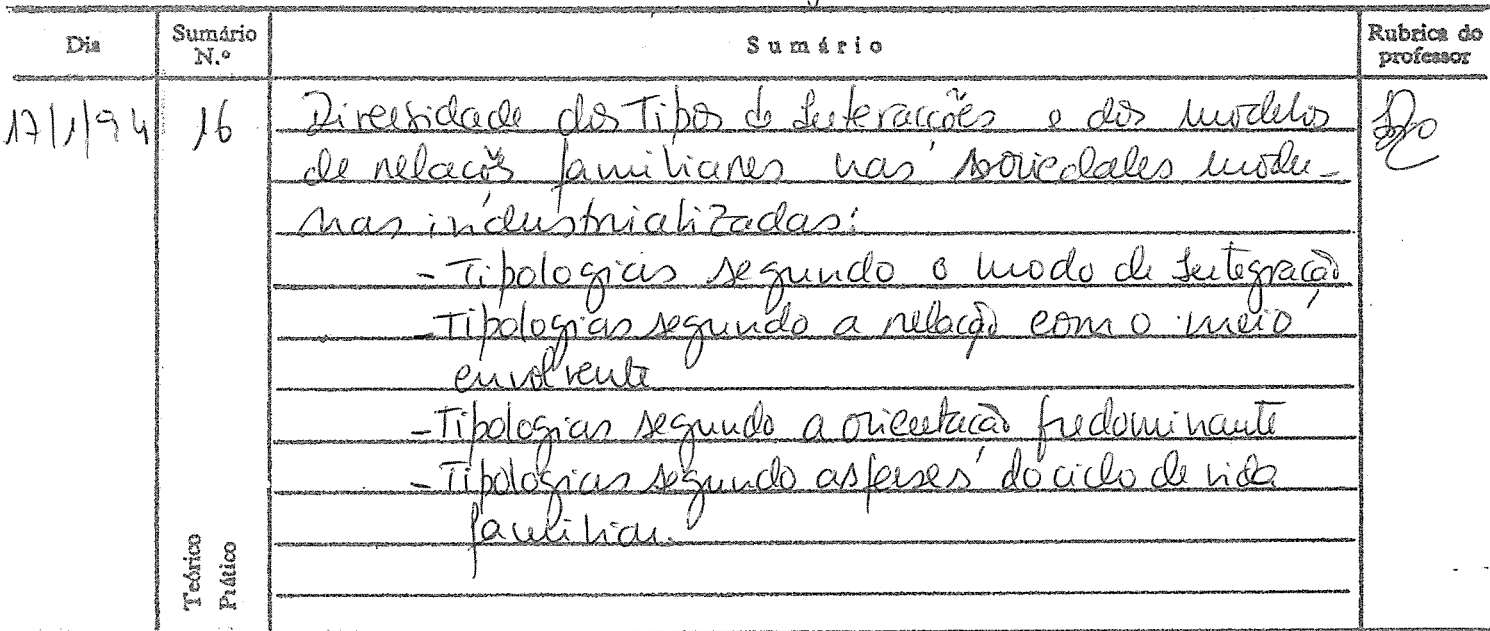 Dia
Sumário N.º
Sumário
Rubrica do professor
17/1/94
16
Diversidade dos Tipos de Interacções e dos modelos
de relações familiares nas sociedades moder-
nas industrializadas:
- Tipologias segundo o modo de Integração
- Tipologias segundo a relação com o meio
envolvente
- Tipologias segundo a orientação predominante
- Tipologias segundo as fases do ciclo de vida
familiar.
Teórico
Prático